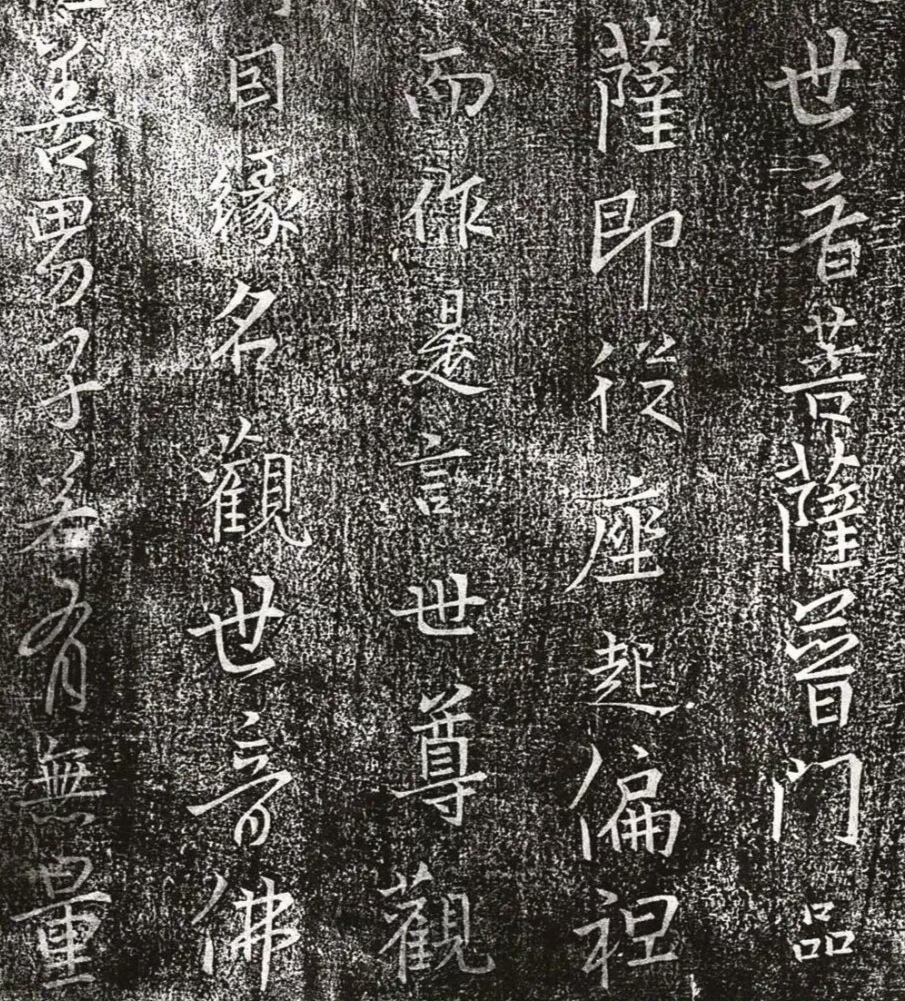 世音菩薩普門品
薩即從座起偏袒
而作是言世尊觀
因緣名觀世音佛
善男子若有無量